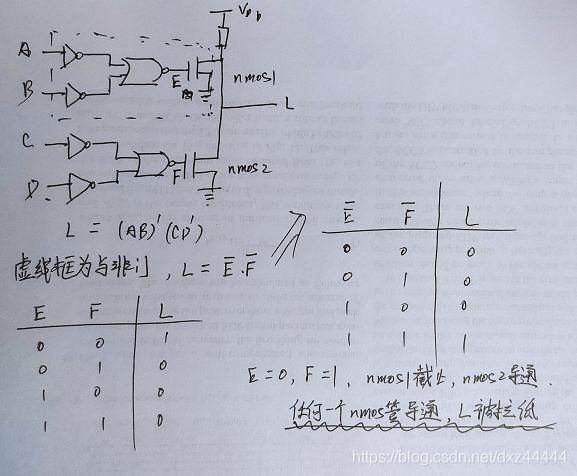 VDD
A
E
nmos1
B
L
C
D
F
nmos2
L = (AB)'(CD')
虚线框为与非门, L = E̅·F̅
E F L
0 0 1
0 1 0
1 0 0
1 1 0
E̅ F̅ L
0 0 0
0 1 0
1 0 0
1 1 1
E=0, F=1, nmos1截止, nmos2导通.
任何一个nmos管导通, L被拉低
https://blog.csdn.net/dxz44444